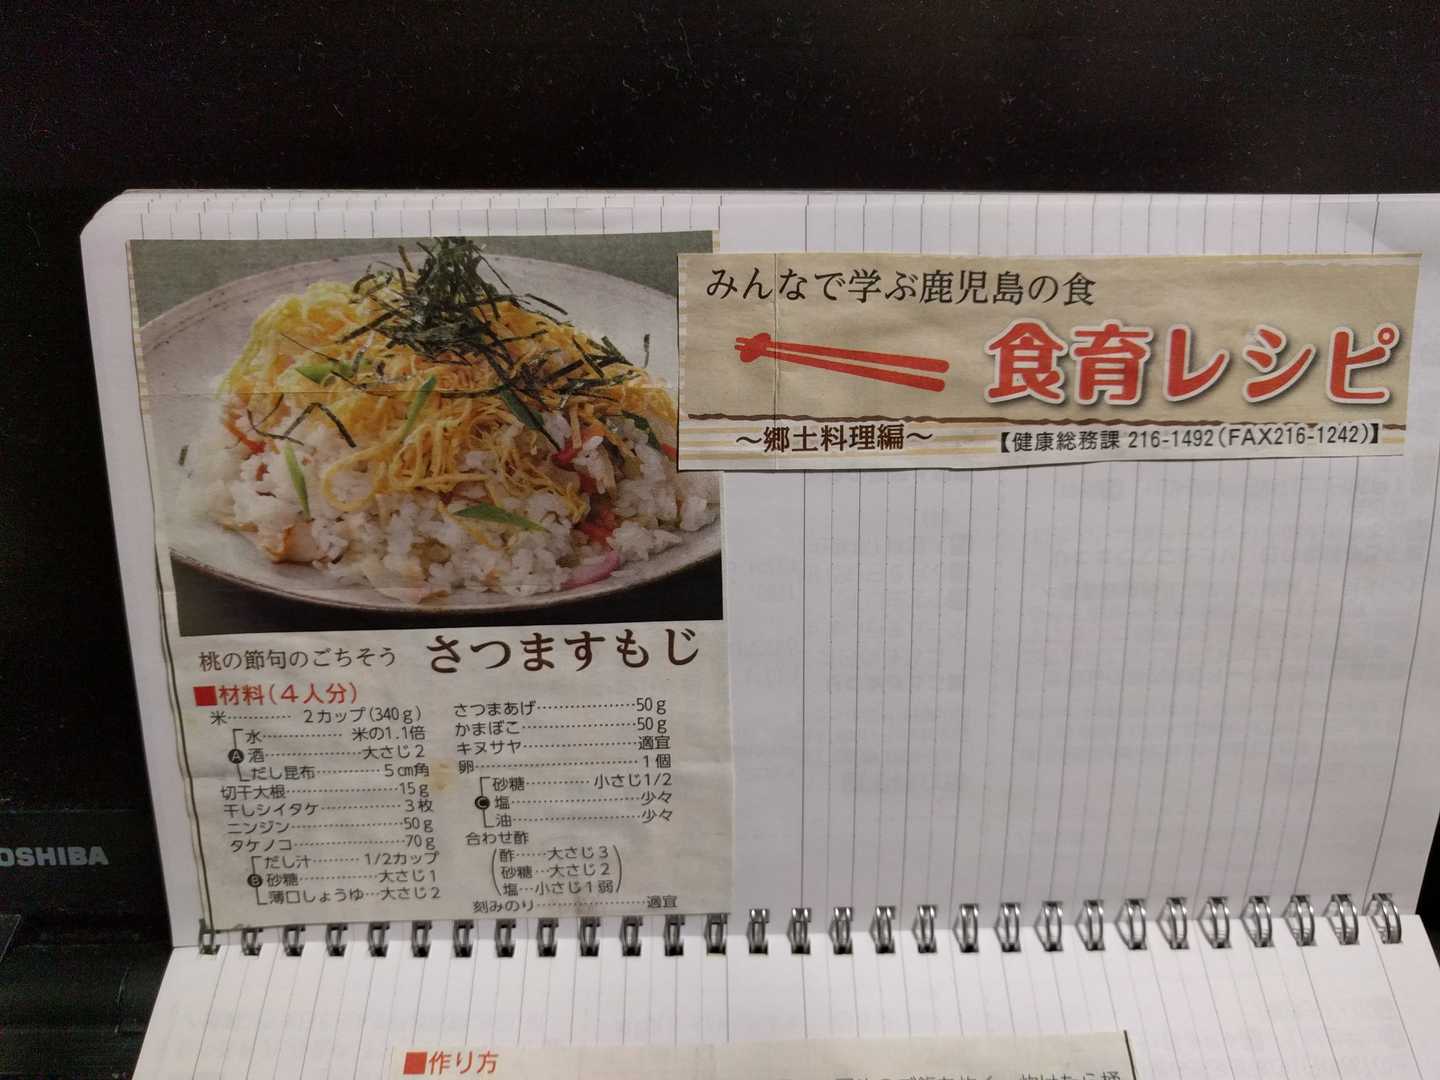 みんなで学ぶ鹿児島の食
食育レシピ
～郷土料理編～
【健康総務課 216-1492(FAX216-1242)】
桃の節句のごちそう さつますもじ
■材料(4人分)
米………… 2カップ(340g)
水…………… 米の1.1倍
A 酒………………大さじ2
だし昆布…………5㎝角
切干大根…………………15g
干しシイタケ………………3枚
ニンジン…………………50g
タケノコ…………………70g
だし汁……… 1/2カップ
B 砂糖……………大さじ1
薄口しょうゆ…大さじ2
さつまあげ………………50g
かまぼこ…………………50g
キヌサヤ…………………適宜
卵…………………………1個
砂糖…………小さじ1/2
C 塩……………………少々
油……………………少々
合わせ酢
酢……大さじ3
砂糖…大さじ2
塩…小さじ1弱
刻みのり…………………適宜
OSHIBA
■作り方